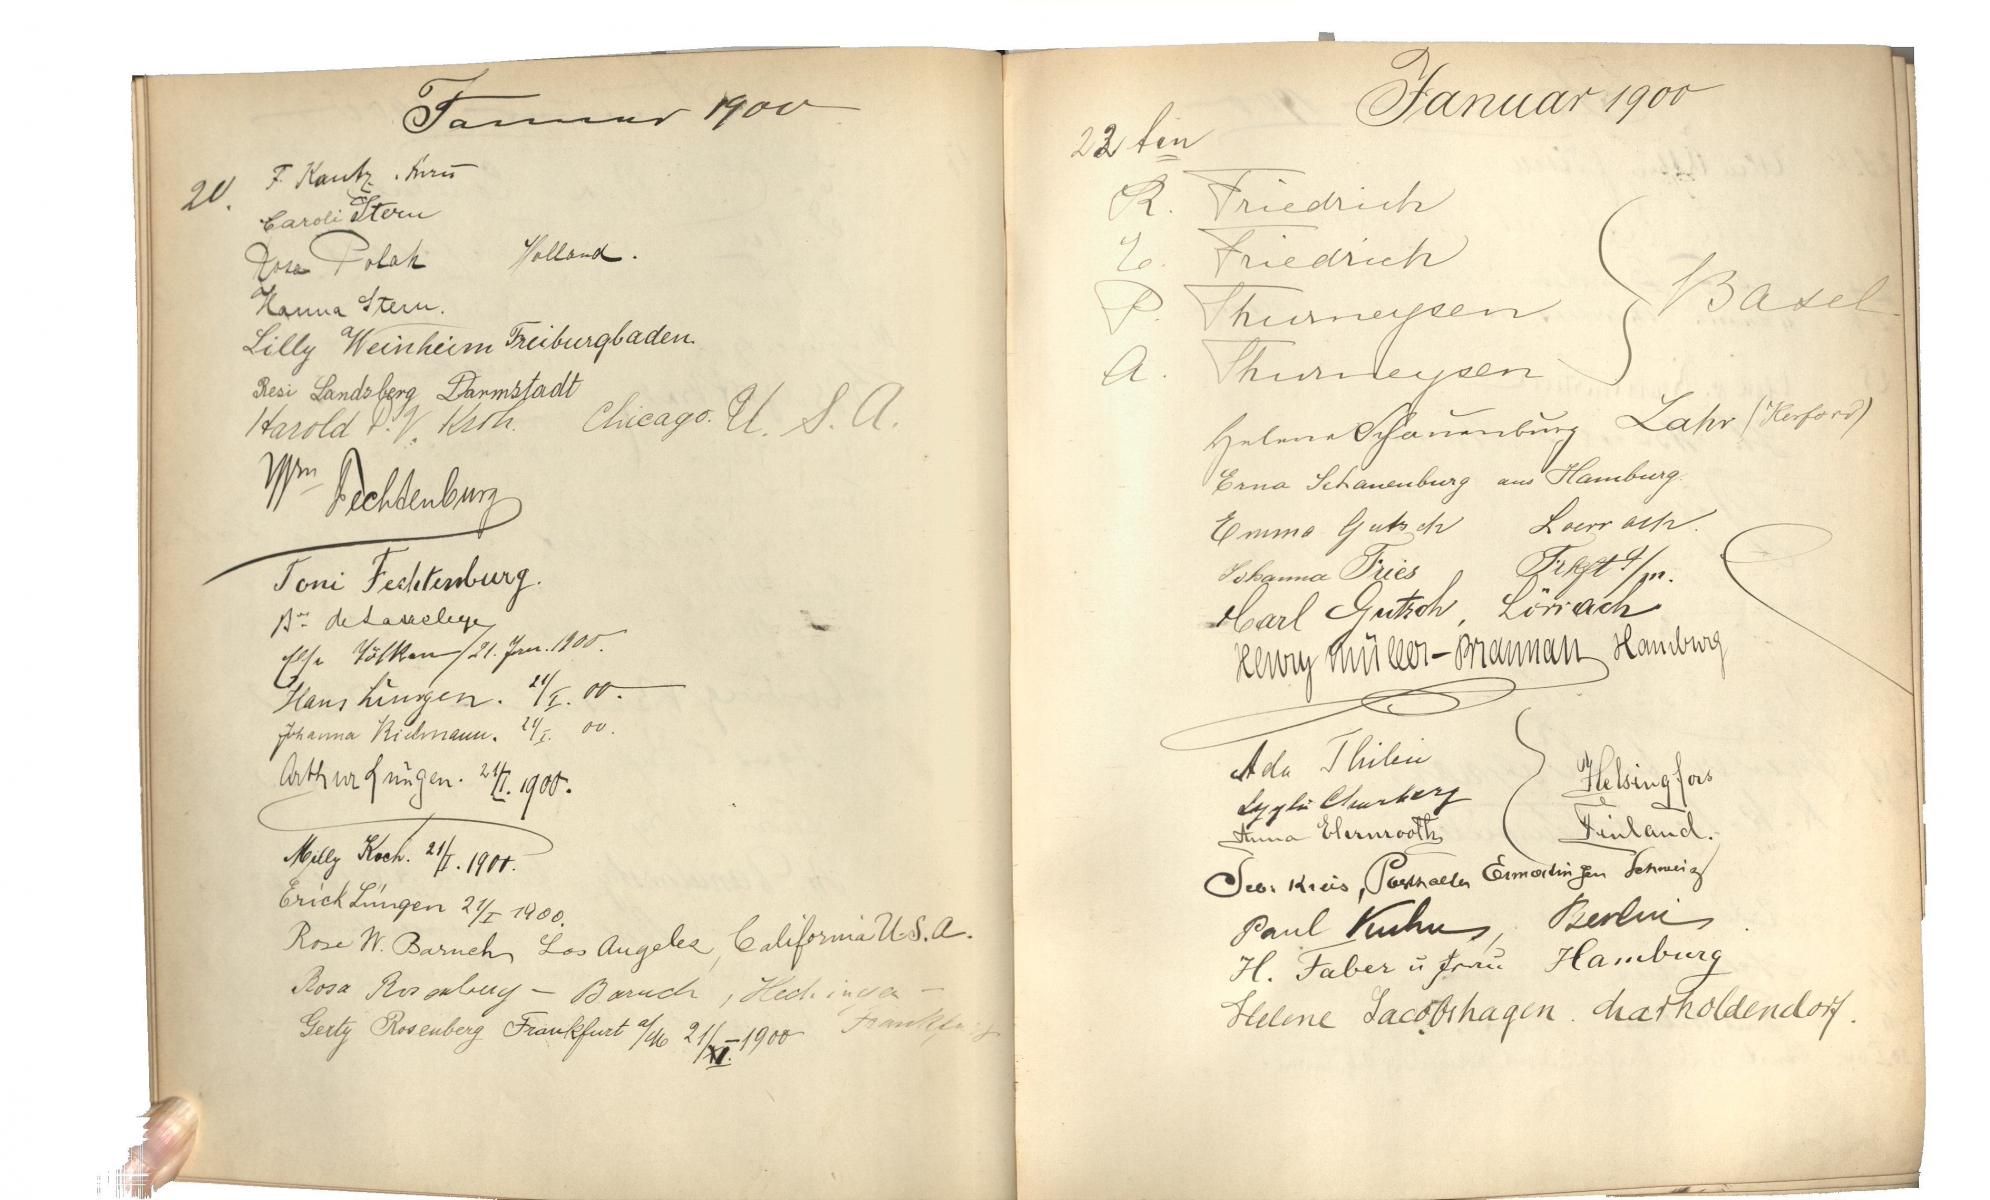 Januar 1900
20. F. Kautz
Caroli Stern
Rosa Polak Holland.
Hanna Stern.
Lilly Weinheim Freiburgbaden.
Resi Landsberg Darmstadt
Harold P. V. Chicago. U. S. A.
Wm Fechtenburg
Toni Fechtenburg.
Else 21. Jan. 1900.
Hans Lüngen. 21/I. 00.
Johanna 21/I. 00.
Arthur Lüngen. 21/I. 1900.
Milly Koch. 21/I. 1900.
Erick Lüngen 21/I 1900.
Rose W. Baruch Los Angeles, California U.S.A.
Rosa Rosenberg – Baruch, Hechingen –
Frankfurt
Gerty Rosenberg Frankfurt a/M 21/I – 1900
Januar 1900
22ten
R. Friedrich
E. Friedrich
P. Thurneysen
A. Thurneysen
Basel
Helene Schauenburg Lahr (Herford)
Erna Schauenburg aus Hamburg.
Emma Gutsch Loerrach.
Johanna Fries Frkft a/m.
Carl Gutsch, Lörrach
Henry Müller-Brannan Hamburg
Ada Thilén
Anna Ehrnrooth
Helsingfors
Finland.
Kreis, Posthalter Ermatingen Schweiz
Paul Kuhn, Berlin
H. Faber u Frau Hamburg
Helene Jacobshagen. Markoldendorf.